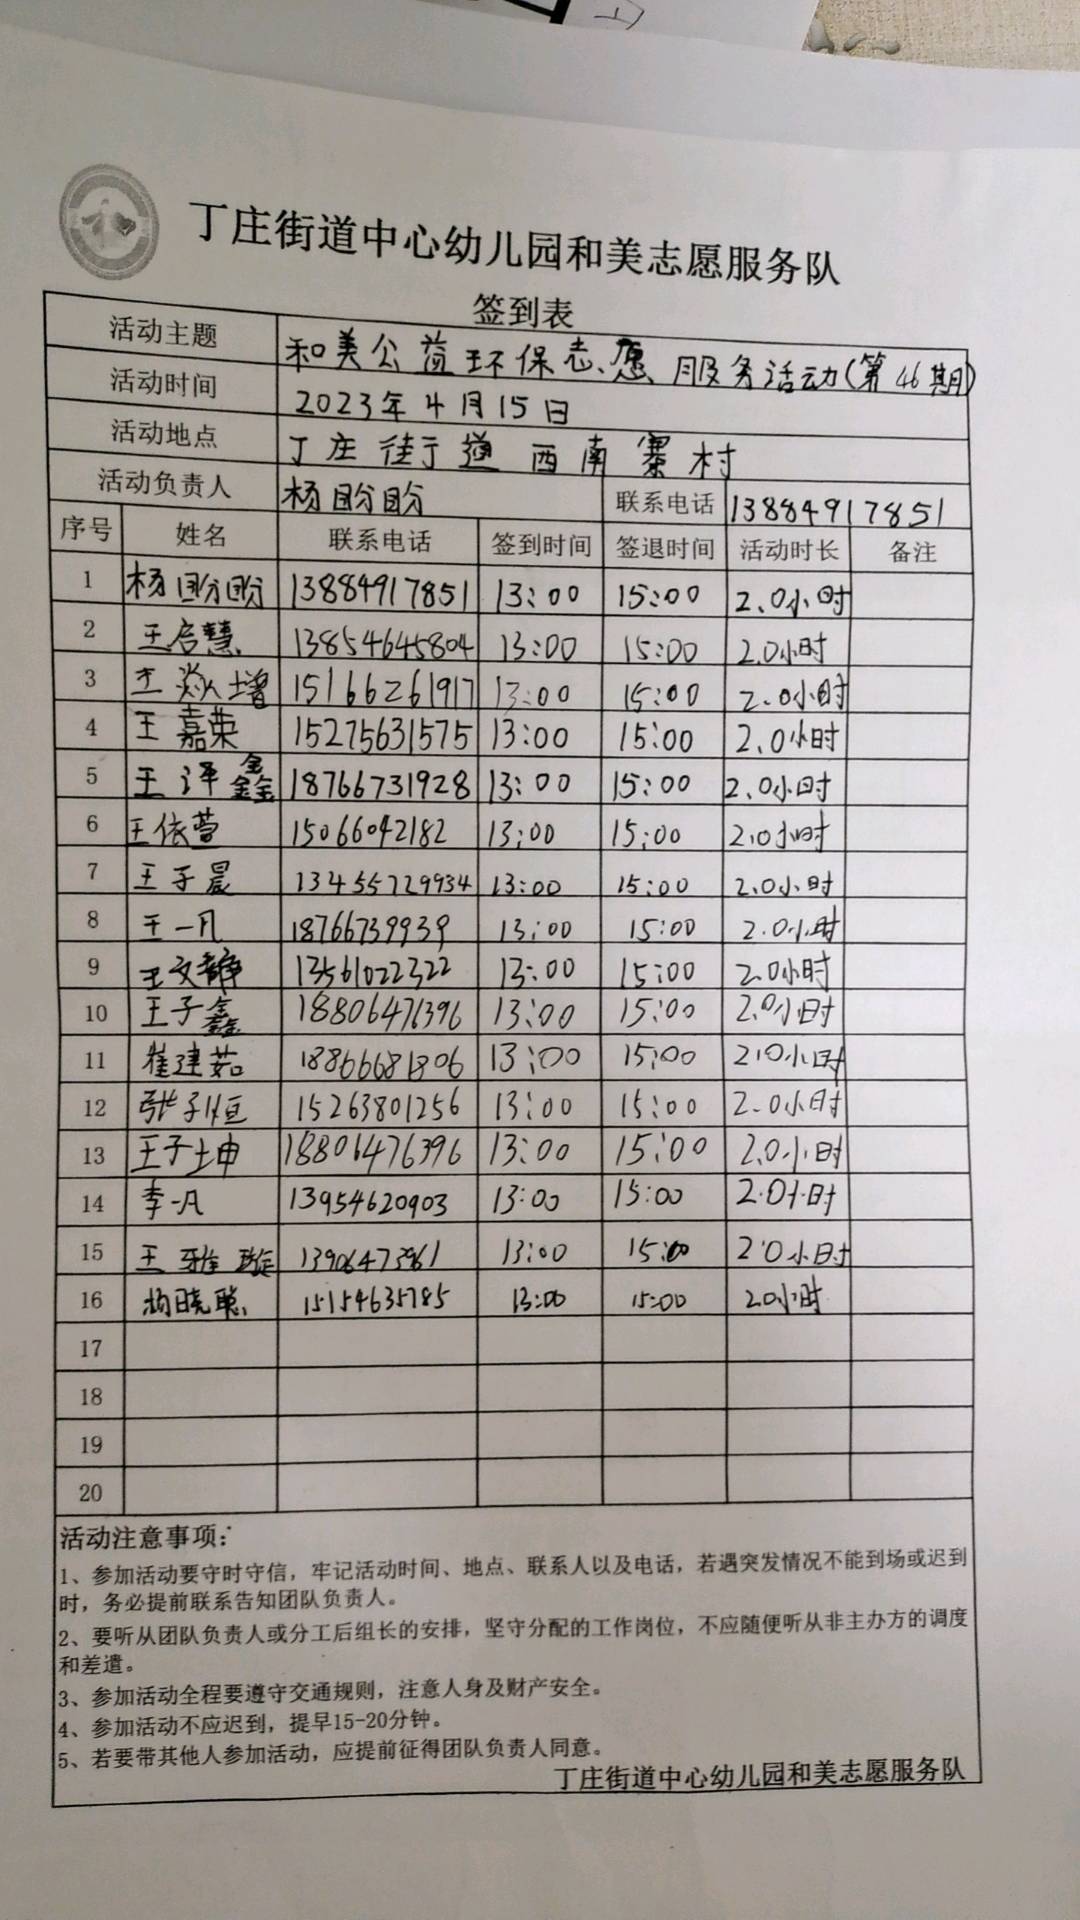 丁庄街道中心幼儿园和美志愿服务队
签到表
活动主题 和美公益环保志愿服务活动(第46期)
活动时间 2023年4月15日
活动地点 丁庄街道西南寨村
活动负责人 杨盼盼 联系电话 13884917851
序号 姓名 联系电话 签到时间 签退时间 活动时长 备注
1 杨盼盼 13884917851 13:00 15:00 2.0小时
2 王启慧 13854645804 13:00 15:00 2.0小时
3 15166261917 13:00 15:00 2.0小时
4 王嘉荣 15275631575 13:00 15:00 2.0小时
5 王译鑫 18766731928 13:00 15:00 2.0小时
6 王依萱 15066042182 13:00 15:00 2.0小时
7 王子晨 13:00 15:00 2.0小时
8 王一凡 18766739939 13:00 15:00 2.0小时
9 王文静 13561022322 13:00 15:00 2.0小时
10 王子鑫 18806476396 13:00 15:00 2.0小时
11 崔建茹 18866681806 13:00 15:00 2.0小时
12 张子恒 15263801256 13:00 15:00 2.0小时
13 王子坤 18806476396 13:00 15:00 2.0小时
14 李一凡 13954620903 13:00 15:00 2.0小时
15 王雅璇 13906473961 13:00 15:00 2.0小时
16 杨晓聪 15154635785 13:00 15:00 2.0小时
17
18
19
20
活动注意事项:
1、参加活动要守时守信，牢记活动时间、地点、联系人以及电话，若遇突发情况不能到场或迟到
时，务必提前联系告知团队负责人。
2、要听从团队负责人或分工后组长的安排，坚守分配的工作岗位，不应随便听从非主办方的调度
和差遣。
3、参加活动全程要遵守交通规则，注意人身及财产安全。
4、参加活动不应迟到，提早15-20分钟。
5、若要带其他人参加活动，应提前征得团队负责人同意。
丁庄街道中心幼儿园和美志愿服务队